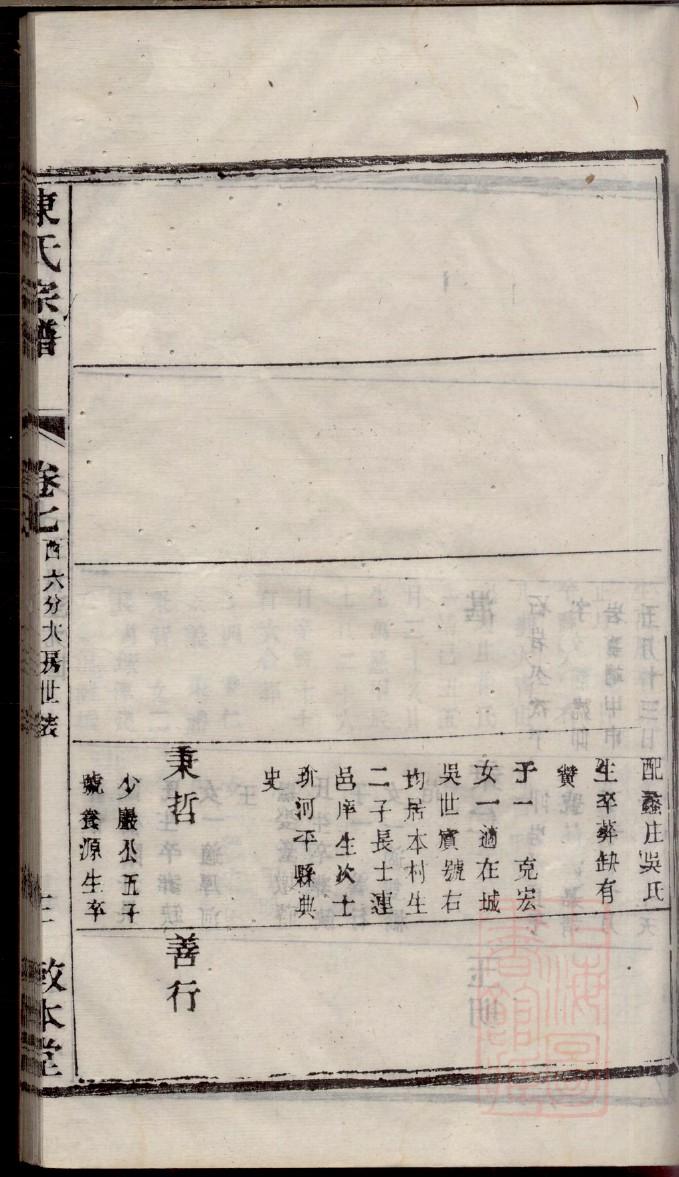 配蠡庄吳氏
生卒葬缺有
贊
子一　克宏
女一適在城
吳世賓號右
均居本村生
二子長士連
邑庠生次士
昕河平縣典
史
秉哲　善行
少嚴公五子
號養源生卒
陳氏宗譜
卷七
西六分大房世表
敦本堂